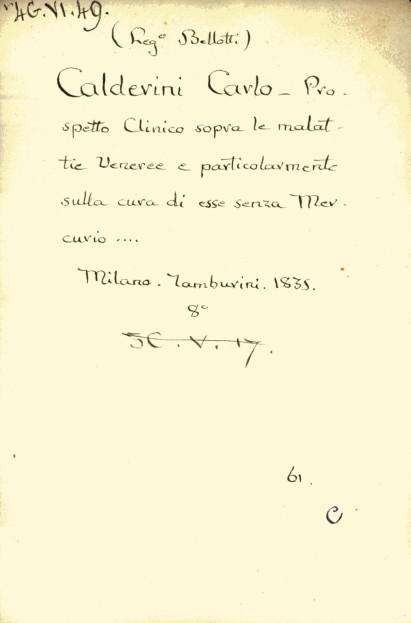 4G.VI.49.
(Leg.º Bellotti)
Calderini Carlo - Pro-
spetto Clinico sopra le malat-
tie Veneree e particolarmente
sulla cura di esse senza Mer-
curio ....
Milano. Tamburini. 1835.
8º
5C.V.17.
61.
C